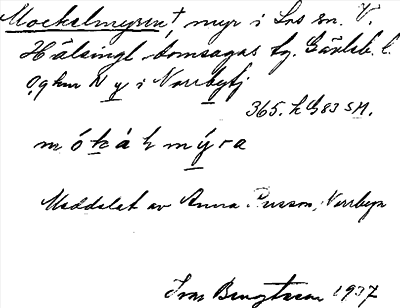 Mockelmyren, myr i Lrs sn. V.
Hälsingl. domsagas tg. Gävleb. l.
0,9 km N y i Norrbyfj
365. h G 83 SM.
m ó k á l m ý r a
Meddelat av Anna Persson, Norrbyn
Ivar Bengtsson 1937